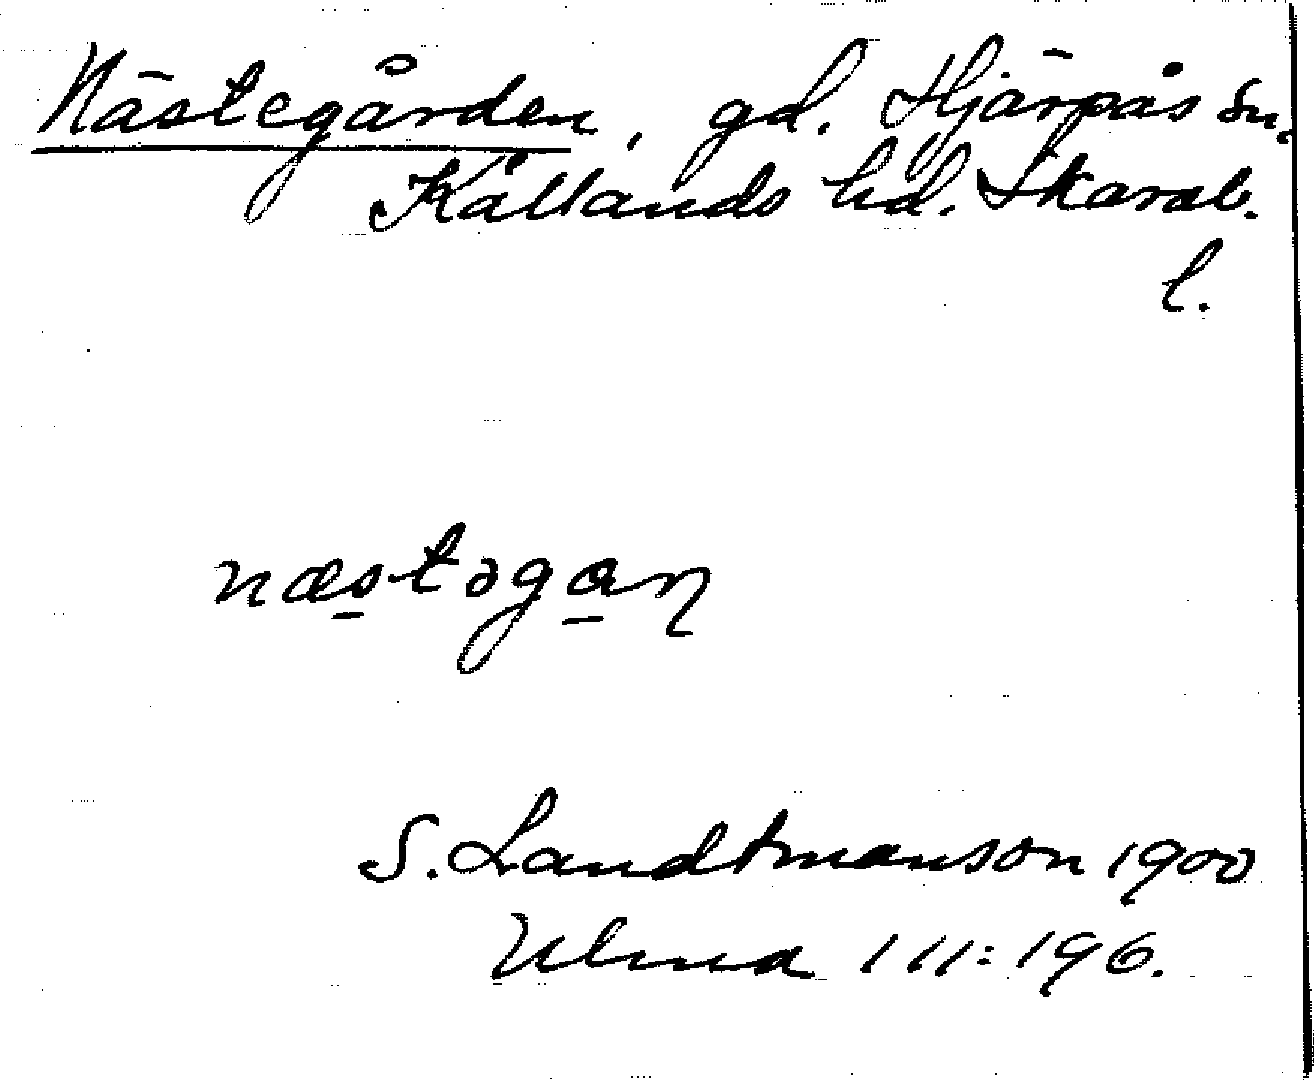 Nästegården, gd. Hjärpås sn,
Kållands hd. Skarab.
l.
næstəgaɳ
S. Landtmanson 1900
Ulma 111:196.